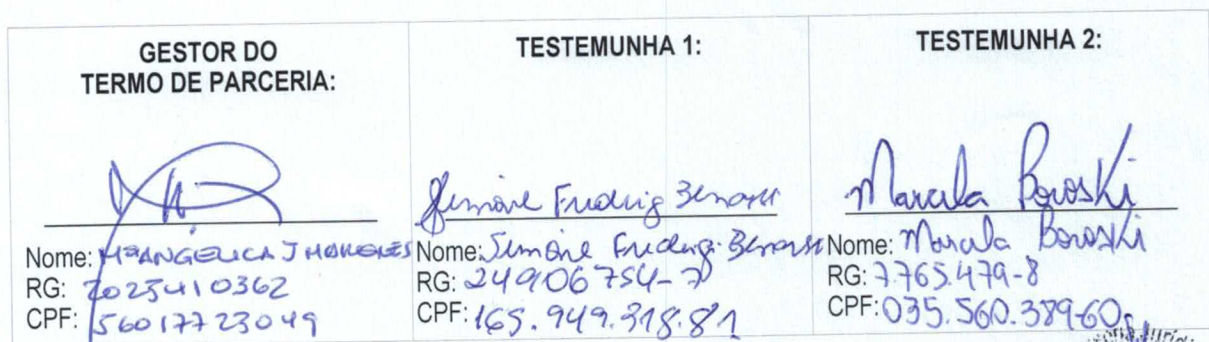 GESTOR DO
TERMO DE PARCERIA:
Nome: Mª ANGÉLICA J
RG: 2023410362
CPF: 56017723049
TESTEMUNHA 1:
Simone
Nome: Simone
RG: 24906754-7
CPF: 165.949.318.81
TESTEMUNHA 2:
Marcela Boroski
Nome: Marcela Boroski
RG: 7.765.479-8
CPF: 035.560.389-60